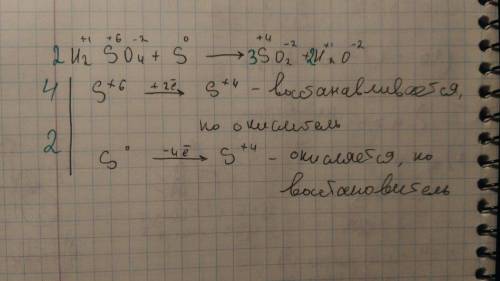 +1 +6 -2 0 +4 -2 +1 -2
2H₂SO₄ + S → 3SO₂ + 2H₂O
4 | S⁺⁶ +2ē→ S⁺⁴ - восстанавливается,
но окислитель
2 | S⁰ -4ē→ S⁺⁴ - окисляется, но
восстановитель